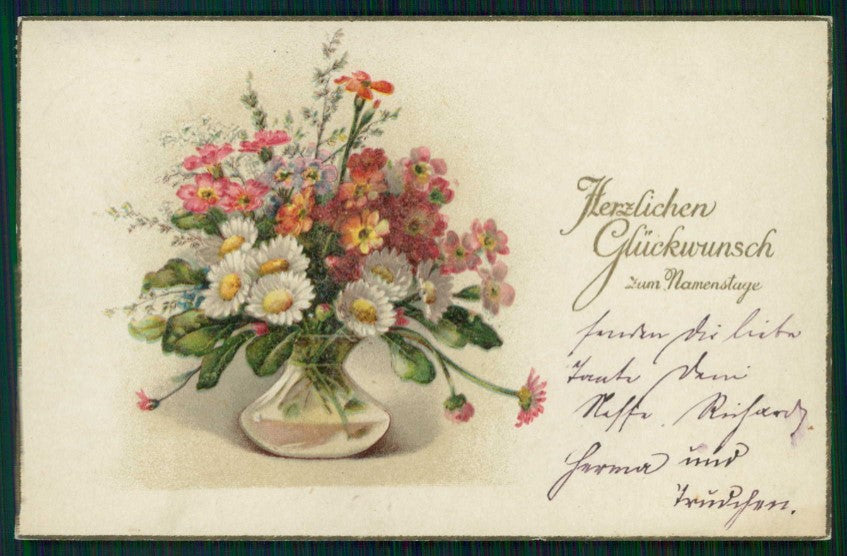 Herzlichen
Glückwunsch
zum Namenstage
senden Dir liebe
Tante Dein
Neffe. Richard,
Herma und
Trudchen.